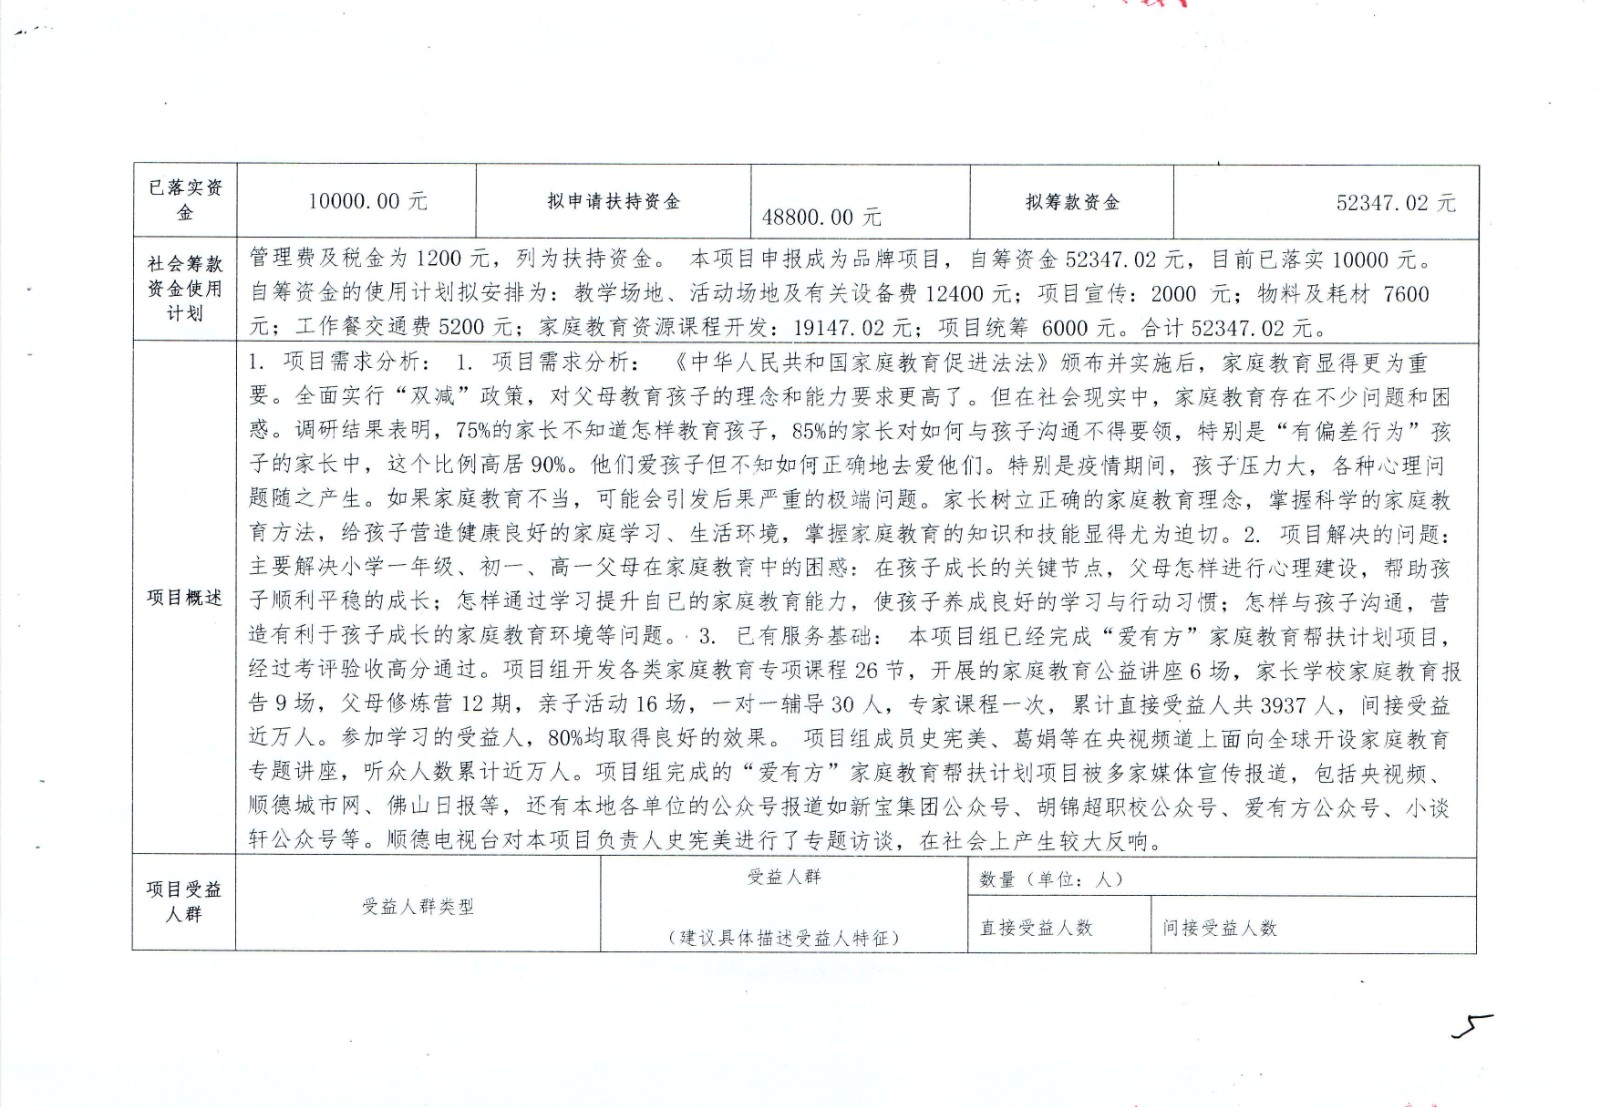 已落实资金 10000.00 元 拟申请扶持资金 48800.00 元 拟筹款资金 52347.02 元
社会筹款资金使用计划
管理费及税金为 1200 元，列为扶持资金。 本项目申报成为品牌项目，自筹资金 52347.02 元，目前已落实 10000 元。
自筹资金的使用计划拟安排为：教学场地、活动场地及有关设备费 12400 元；项目宣传：2000 元；物料及耗材 7600
元；工作餐交通费 5200 元；家庭教育资源课程开发：19147.02 元；项目统筹 6000 元。合计 52347.02 元。
项目概述
1. 项目需求分析： 1. 项目需求分析： 《中华人民共和国家庭教育促进法法》颁布并实施后，家庭教育显得更为重
要。全面实行“双减”政策，对父母教育孩子的理念和能力要求更高了。但在社会现实中，家庭教育存在不少问题和困
惑。调研结果表明，75%的家长不知道怎样教育孩子，85%的家长对如何与孩子沟通不得要领，特别是“有偏差行为”孩
子的家长中，这个比例高居 90%。他们爱孩子但不知如何正确地去爱他们。特别是疫情期间，孩子压力大，各种心理问
题随之产生。如果家庭教育不当，可能会引发后果严重的极端问题。家长树立正确的家庭教育理念，掌握科学的家庭教
育方法，给孩子营造健康良好的家庭学习、生活环境，掌握家庭教育的知识和技能显得尤为迫切。2. 项目解决的问题：
主要解决小学一年级、初一、高一父母在家庭教育中的困惑：在孩子成长的关键节点，父母怎样进行心理建设，帮助孩
子顺利平稳的成长；怎样通过学习提升自已的家庭教育能力，使孩子养成良好的学习与行动习惯；怎样与孩子沟通，营
造有利于孩子成长的家庭教育环境等问题。 3. 已有服务基础： 本项目组已经完成“爱有方”家庭教育帮扶计划项目，
经过考评验收高分通过。项目组开发各类家庭教育专项课程 26 节，开展的家庭教育公益讲座 6 场，家长学校家庭教育报
告 9 场，父母修炼营 12 期，亲子活动 16 场，一对一辅导 30 人，专家课程一次，累计直接受益人共 3937 人，间接受益
近万人。参加学习的受益人，80%均取得良好的效果。 项目组成员史宪美、葛娟等在央视频道上面向全球开设家庭教育
专题讲座，听众人数累计近万人。项目组完成的“爱有方”家庭教育帮扶计划项目被多家媒体宣传报道，包括央视频、
顺德城市网、佛山日报等，还有本地各单位的公众号报道如新宝集团公众号、胡锦超职校公众号、爱有方公众号、小谈
轩公众号等。顺德电视台对本项目负责人史宪美进行了专题访谈，在社会上产生较大反响。
项目受益人群
受益人群类型
受益人群
（建议具体描述受益人特征）
数量（单位：人）
直接受益人数 间接受益人数
5